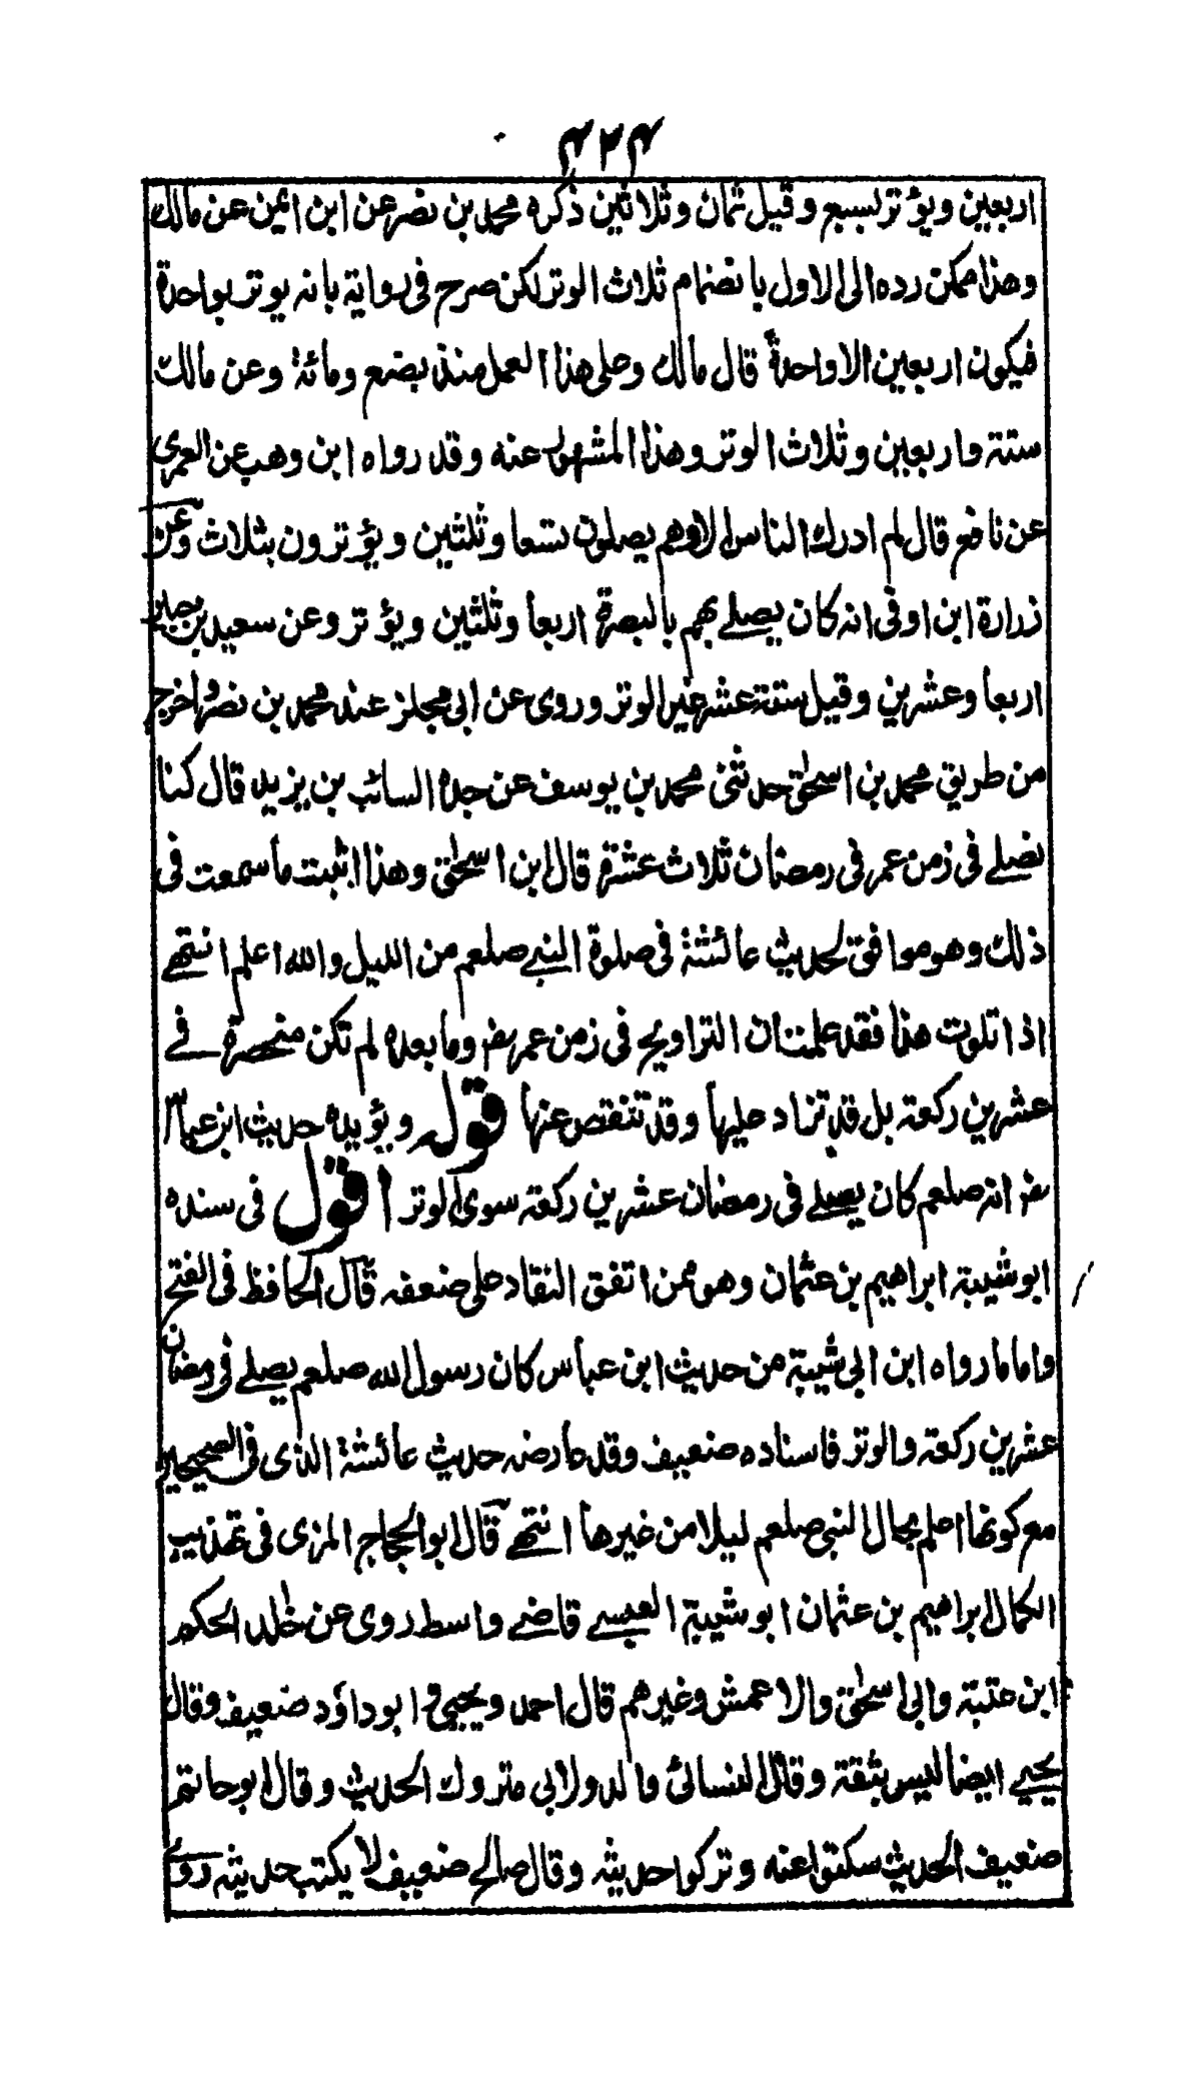 ۴۲۴
اربعين ويؤتر لسبع وقيل ثمان وثلاثين ذكره محمد بن نصر عن ابن ايمن عن مالك
وهذا ممكن رده الى الاول بانضمام ثلاث الوتر لكن صرح فى رواية بانه يوتر بواحدة
فيكون اربعين الا واحدة قال مالك وعلى هذا العمل منذ بضع ومائة وعن مالك
ستة واربعين وثلاث الوتر وهذا المشهور عنه وقد رواه ابن وهب عن العمرى
عن نافع قال لم ادرك الناس الا وهم يصلون تسعا وثلثين ويؤترون بثلاث وعن
زرارة ابن اوفى انه كان يصلے بهم بالبصرة اربعا وثلثين ويؤتر وعن سعيد بن جبير
اربعا وعشرين وقيل ستة عشر غير الوتر وروى عن ابى مجلز عند محمد بن نصر واخرج
من طريق محمد بن اسحٰق حدثنى محمد بن يوسف عن جده السائب بن يزيد قال كنا
نصلے فى زمن عمر فى رمضان ثلاث عشرة قال ابن اسحٰق وهذا اثبت ما سمعت فى
ذلك وهو موافق لحديث عائشة فى صلوة النبے صلعم من الليل والله اعلم انتهے
اذا تلوت هذا فقد علمت ان التراويح فى زمن عمر رضـ وما بعده لم تكن منحصرة فے
عشرين ركعة بل قد تزاد عليها وقد تنقص عنها قوله ويؤيده حديث ابن عباس
رضـ انه صلعم كان يصلے فى رمضان عشرين ركعة سوى الوتر اقول فى سنده
ابو شيبة ابراهيم بن عثمان وهو ممن اتفق النقاد على ضعفه قال الحافظ فى الفتح
واما ما رواه ابن ابى شيبة من حديث ابن عباس كان رسول الله صلعم يصلے فى رمضان
عشرين ركعة والوتر فاسناده ضعيف وقد عارضه حديث عائشة الذى فى الصحيحين
مع كونها اعلم بحال النبى صلعم ليلا من غيرها انتهے قال ابو الحجاج المزى فى تهذيب
الكمال ابراهيم بن عثمان ابو شيبة العبسے قاضے واسط روى عن خاله الحكم
ابن عتبة وابى اسحٰق والاعمش وغيرهم قال احمد ويحيى وابو داؤد ضعيف وقال
يحيے ايضا ليس بثقة وقال النسائى والدولابى متروك الحديث وقال ابو حاتم
ضعيف الحديث سكتوا عنه وتركوا حديثه وقال صالح ضعيف لا يكتب حديثه روى